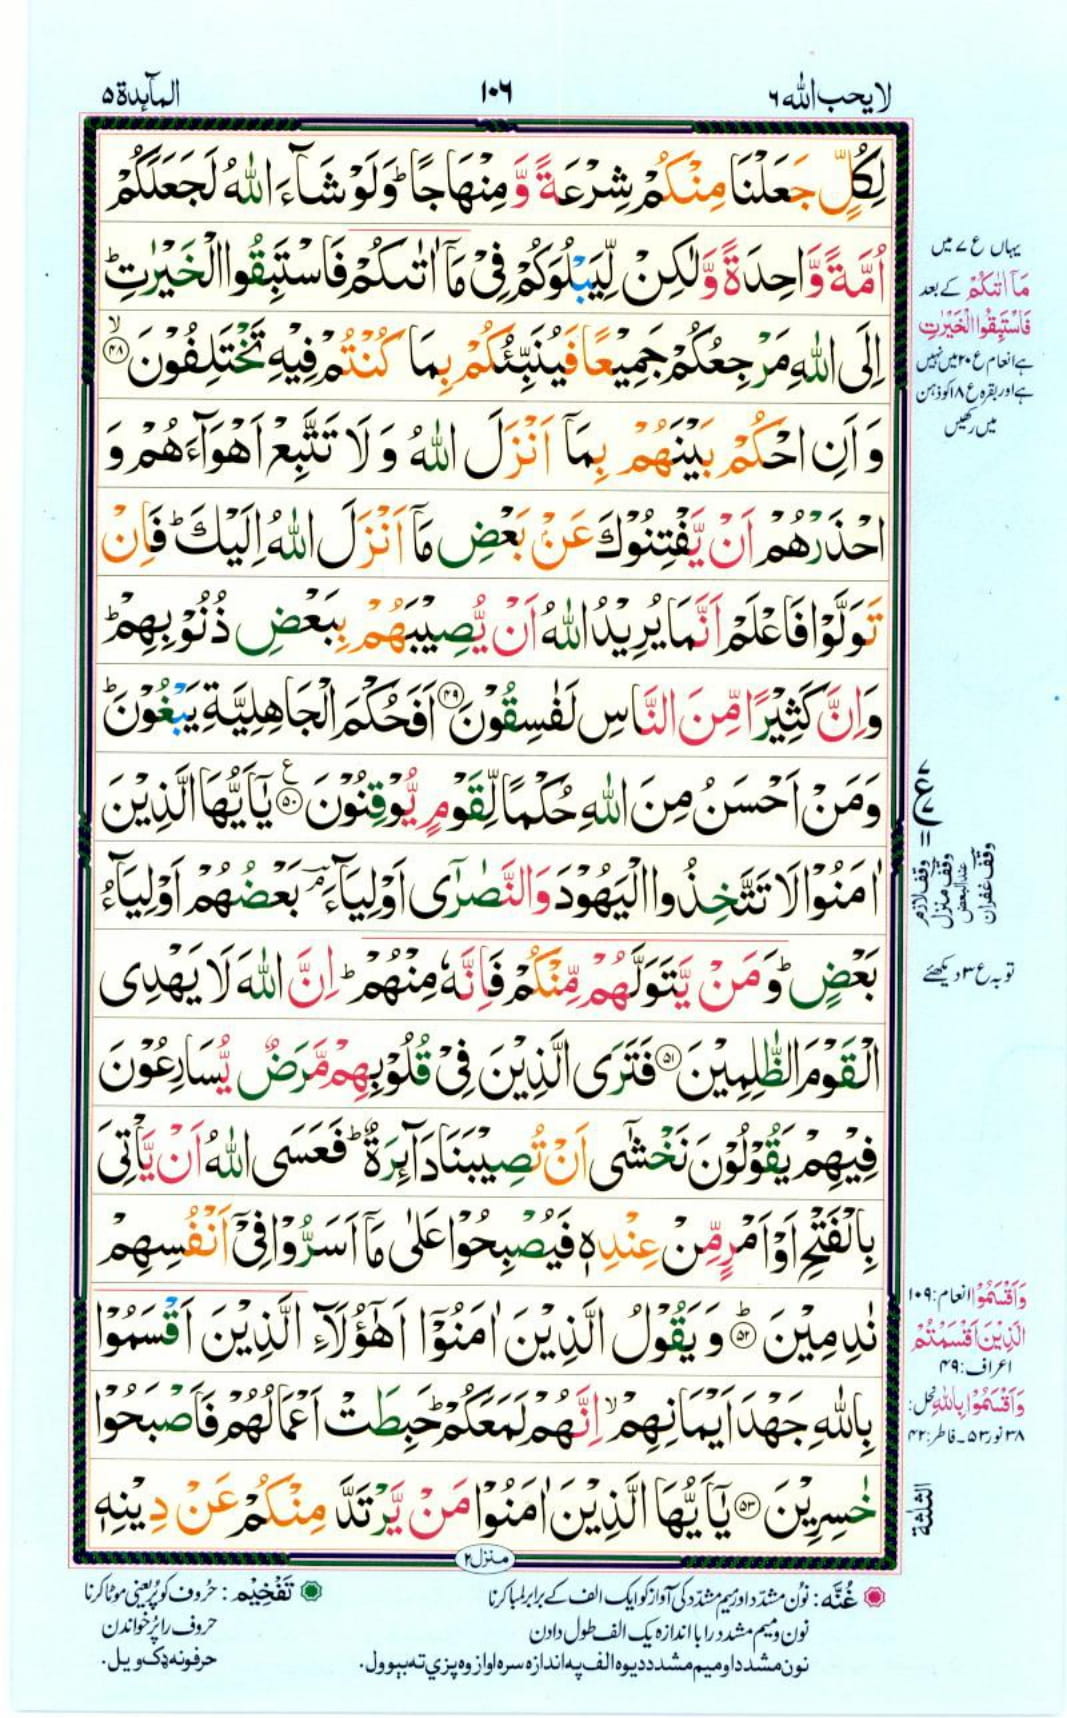 لا يحب الله ٦
١٠٦
المآئدة ٥
لِكُلٍّ جَعَلْنَا مِنْكُمْ شِرْعَةً وَّ مِنْهَاجًا ؕ وَلَوْ شَآءَ اللّٰهُ لَجَعَلَكُمْ
اُمَّةً وَّاحِدَةً وَّلٰكِنْ لِّيَبْلُوَكُمْ فِىْ مَآ اٰتٰىكُمْ فَاسْتَبِقُوا الْخَيْرٰتِ ؕ
اِلَى اللّٰهِ مَرْجِعُكُمْ جَمِيْعًا فَيُنَبِّئُكُمْ بِمَا كُنْتُمْ فِيْهِ تَخْتَلِفُوْنَ ۙ ﴿۴۸﴾
وَ اَنِ احْكُمْ بَيْنَهُمْ بِمَآ اَنْزَلَ اللّٰهُ وَ لَا تَتَّبِعْ اَهْوَآءَهُمْ وَ
احْذَرْهُمْ اَنْ يَّفْتِنُوْكَ عَنْ بَعْضِ مَآ اَنْزَلَ اللّٰهُ اِلَيْكَ ؕ فَاِنْ
تَوَلَّوْا فَاعْلَمْ اَنَّمَا يُرِيْدُ اللّٰهُ اَنْ يُّصِيْبَهُمْ بِبَعْضِ ذُنُوْبِهِمْ ؕ
وَاِنَّ كَثِيْرًا مِّنَ النَّاسِ لَفٰسِقُوْنَ ﴿۴۹﴾ اَفَحُكْمَ الْجَاهِلِيَّةِ يَبْغُوْنَ ؕ
وَمَنْ اَحْسَنُ مِنَ اللّٰهِ حُكْمًا لِّقَوْمٍ يُّوْقِنُوْنَ ﴿۵۰﴾ ع يٰٓاَيُّهَا الَّذِيْنَ
اٰمَنُوْا لَا تَتَّخِذُوا الْيَهُوْدَ وَالنَّصٰرٰٓى اَوْلِيَآءَ ؔۘ بَعْضُهُمْ اَوْلِيَآءُ
بَعْضٍ ؕ وَمَنْ يَّتَوَلَّهُمْ مِّنْكُمْ فَاِنَّهٗ مِنْهُمْ ؕ اِنَّ اللّٰهَ لَا يَهْدِى
الْقَوْمَ الظّٰلِمِيْنَ ﴿۵۱﴾ فَتَرَى الَّذِيْنَ فِىْ قُلُوْبِهِمْ مَّرَضٌ يُّسَارِعُوْنَ
فِيْهِمْ يَقُوْلُوْنَ نَخْشٰٓى اَنْ تُصِيْبَنَا دَآئِرَةٌ ؕ فَعَسَى اللّٰهُ اَنْ يَّاْتِىَ
بِالْفَتْحِ اَوْ اَمْرٍ مِّنْ عِنْدِهٖ فَيُصْبِحُوْا عَلٰى مَآ اَسَرُّوْا فِىْٓ اَنْفُسِهِمْ
نٰدِمِيْنَ ؕ ﴿۵۲﴾ وَ يَقُوْلُ الَّذِيْنَ اٰمَنُوْٓا اَهٰٓؤُلَآءِ الَّذِيْنَ اَقْسَمُوْا
بِاللّٰهِ جَهْدَ اَيْمَانِهِمْ ۙ اِنَّهُمْ لَمَعَكُمْ ؕ حَبِطَتْ اَعْمَالُهُمْ فَاَصْبَحُوْا
خٰسِرِيْنَ ﴿۵۳﴾ يٰٓاَيُّهَا الَّذِيْنَ اٰمَنُوْا مَنْ يَّرْتَدَّ مِنْكُمْ عَنْ دِيْنِهٖ
منزل ٢
یہاں ع ۷ میں
مَآ اٰتٰىكُمْ کے بعد
فَاسْتَبِقُوا الْخَيْرٰتِ
ہے انعام ع ۲۰ میں نہیں
ہے اور بقرہ ع ۱۸ کو ذہن
میں رکھیں
وقف لازم
وقف منزل
عند البعض
وقف غفران
توبہ ع ۳ دیکھئے
وَاَقْسَمُوْا انعام: ۱۰۹
الَّذِيْنَ اَقْسَمْتُمْ
اعراف: ۴۹
وَاَقْسَمُوْا بِاللّٰهِ نحل:
۳۸ نور ۵۳ ۔ فاطر: ۴۲
الثلثة
غُنَّه: نون مشدّد اور میم مشدّد کی آواز کو ایک الف کے برابر لمبا کرنا
نون و میم مشدد را با اندازه یک الف طول دادن
نون مشدد او میم مشدد دیوه الف په اندازه سره اواز وه پزي ته بېوول.
تَفْخِيْم: حُروف کو پُر یعنی موٹا کرنا
حروف را پُر خواندن
حرفونه ډک ویل.